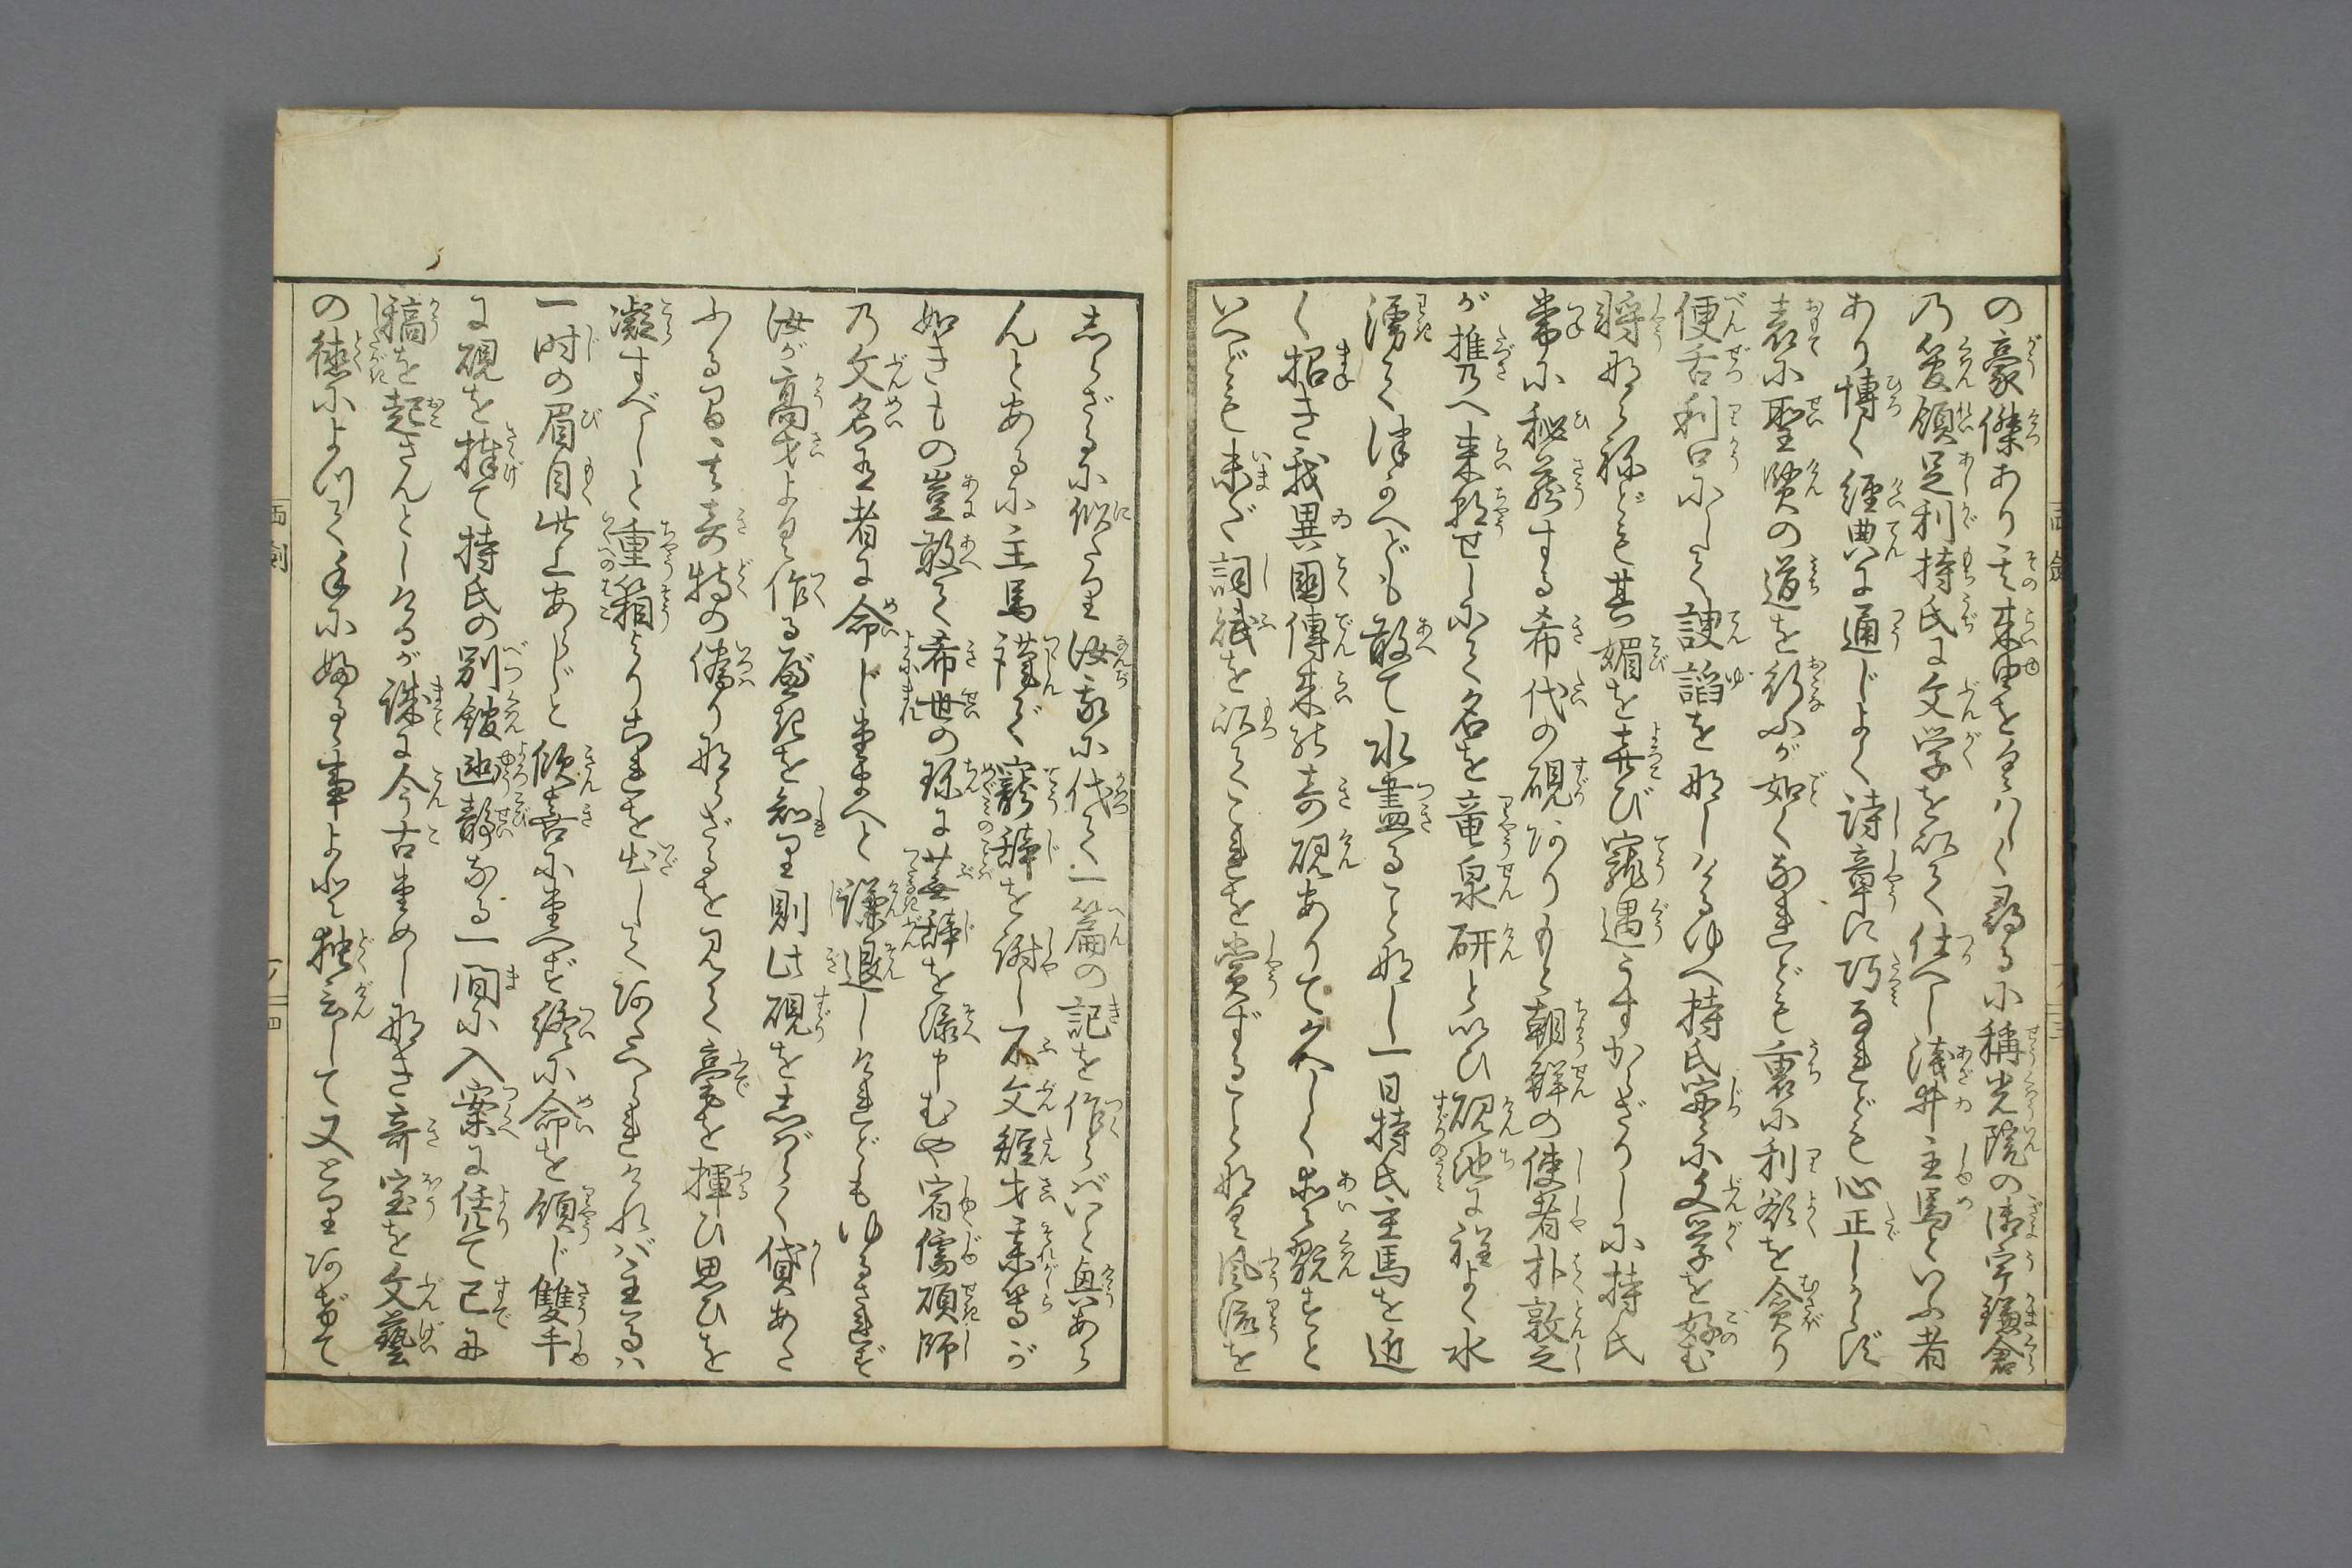 の豪傑あり其来由をくはしく尋るに称光院の御宇鎌倉
の管領足利持氏に文学を以て仕へし浅井主馬といふ者
あり博く経典に通じよく詩章に巧なれども心正しからず
表に聖賢の道を行ふが如くなれども裏に利欲を貪り
便舌利口にして諛諂を那しけるゆへ持氏実に文学を好む
将那らねども其媚を喜び寵遇うすからざりしに持氏
常に秘蔵する希代の硯ありもと朝鮮の使者朴敦之
が携へ来朝せしにて名を竜泉研といひ硯池に裡よく水
湧て津かへども敢て水盡ること那し一日持氏主馬を近
く招き我異国傳来の奇硯ありて久しく愛翫すと
いへども未だ詞紙を以てこれを賞ずること那し風流を
しらざるに似たり汝我に代て一篇の記を作らばいと興あら
んとあるに主馬謹で寵辞を謝し不文短才某等が
如きもの豈敢て希世の珍に蕪辞を添申むや宿儒碩師
の文名有者に命じ玉へと謙退しけれどもゆるされず
汝が高才より作る處を知り則此硯をしばらく貸あた
ふる間其奇特の偽り那らざるを見て毫を揮ひ思ひを
凝すべしと重箱よりこれを出してあたへられければ主馬ハ
一時の眉目此上あらじと欣喜に堪へず終に命を領じ雙手
に硯を捧て持氏の別館幽静なる一間に入案に任て已に
稿を起さんとしけるが誠に今古ためし那き奇宝を文藝
の徳によつて手に婦る事よと独言して又とりあげて